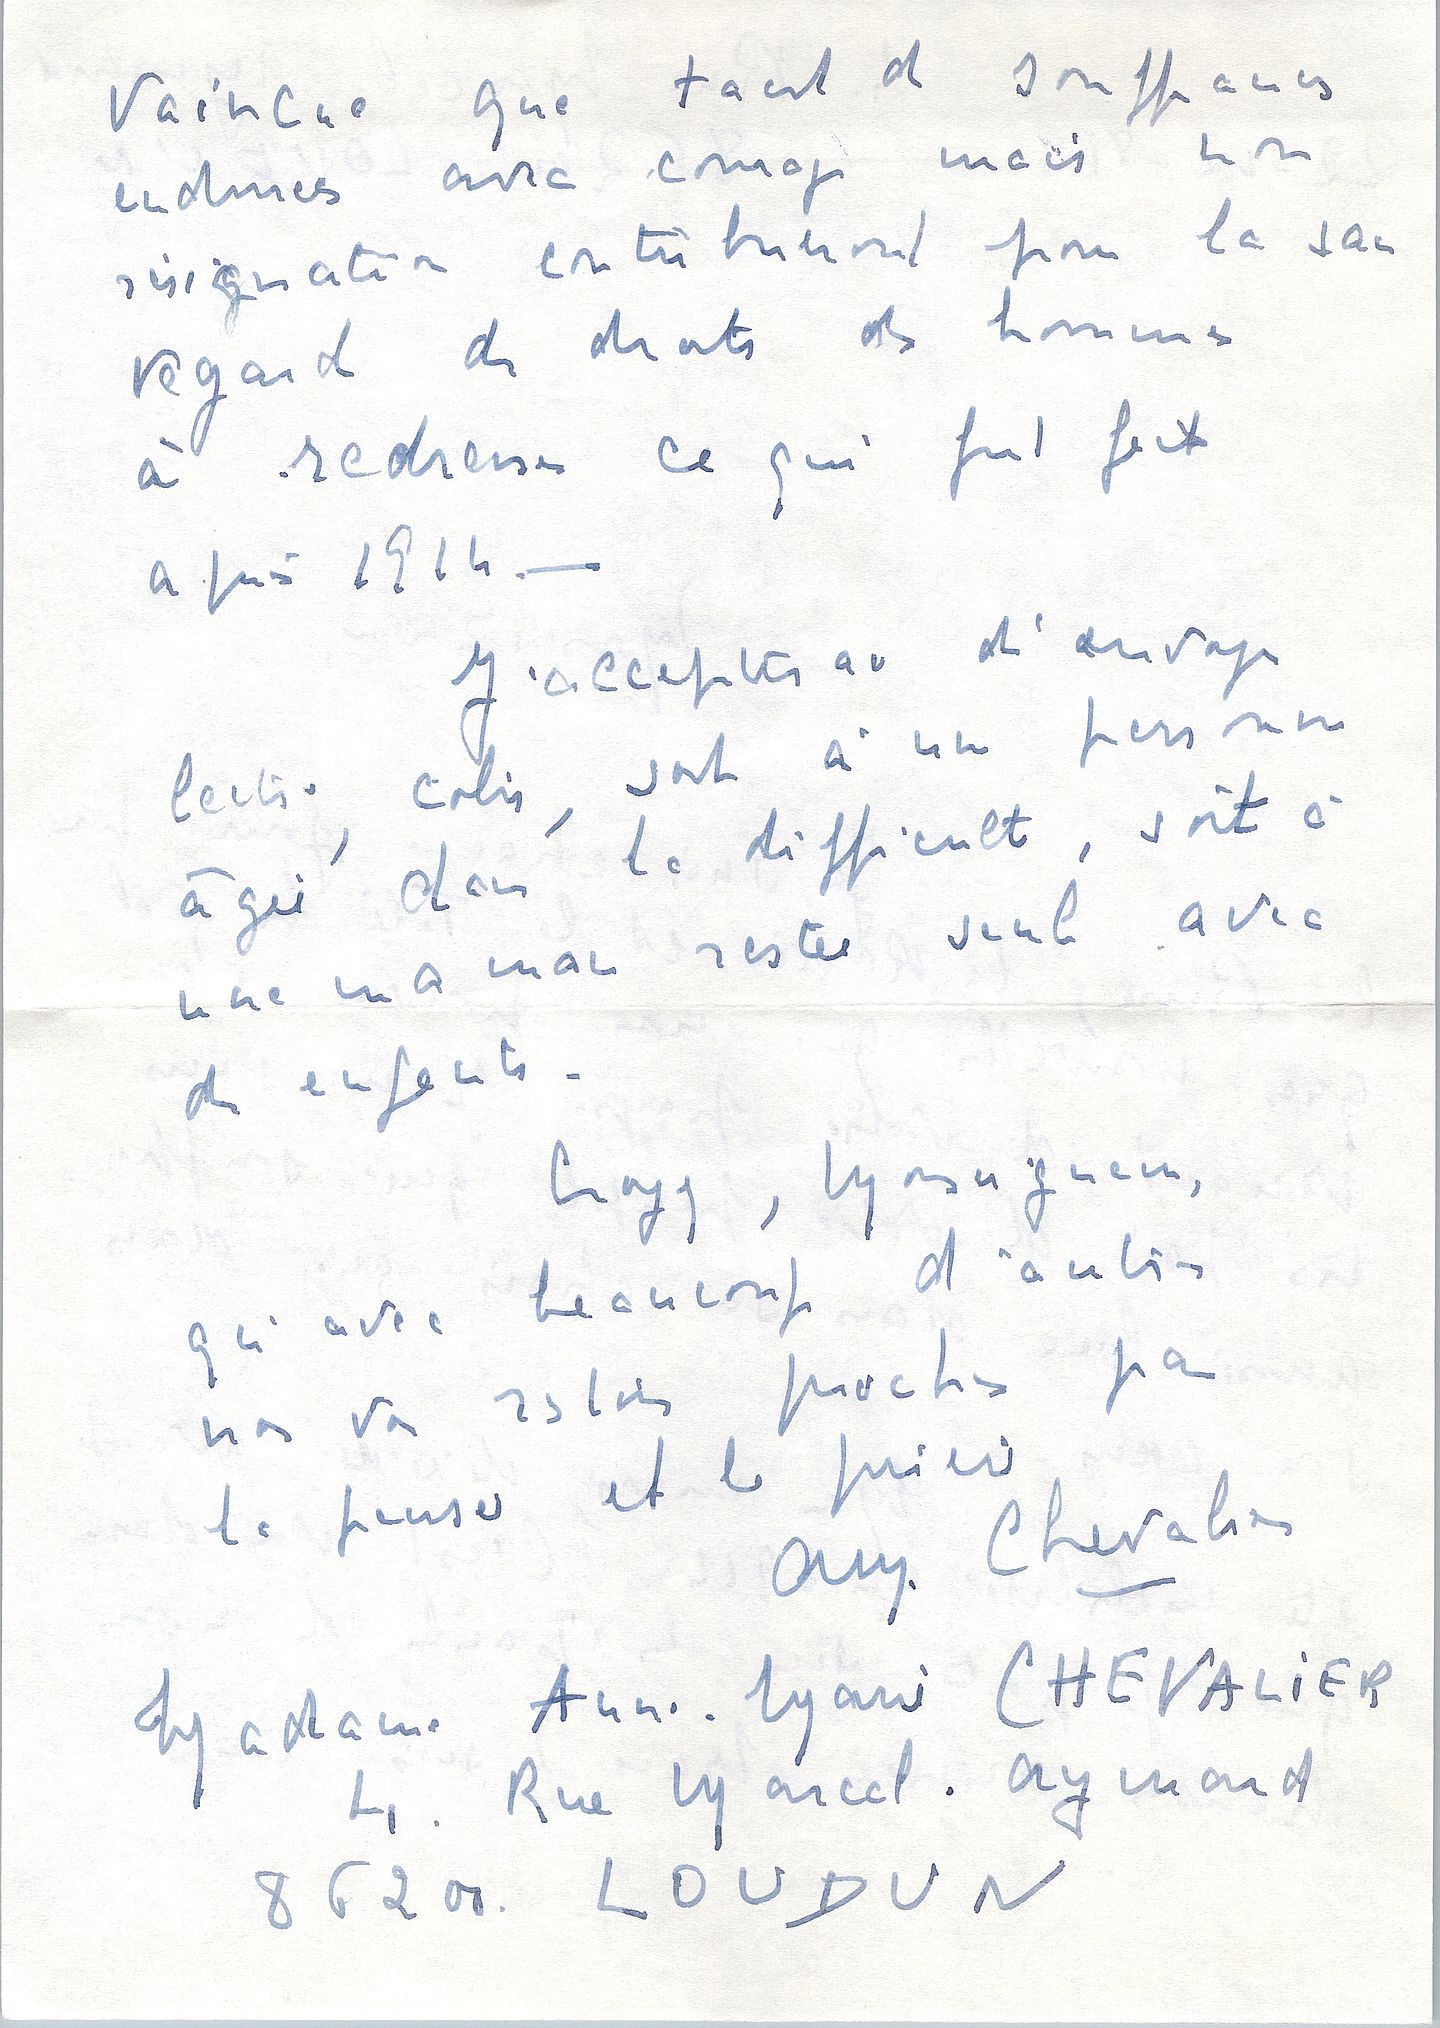 vaincue que tant de souffrances
endurées avec courage mais non
résignation contribueront pour la sau
vegarde des droits des hommes
à redresser ce qui fut fait
après 1914. —
J'accepterai d'envoyer
lettre, colis, soit à une personne
âgée dans la difficulté, soit à
une maman restée seule avec
des enfants.
Croyez, Monseigneur,
qu'avec beaucoup d'autres
nous vous restons proches par
la pensée et la prière
AM. Chevalier
Madame Anne-Marie CHEVALIER
4. Rue Marcel. Aymard
86200. LOUDUN